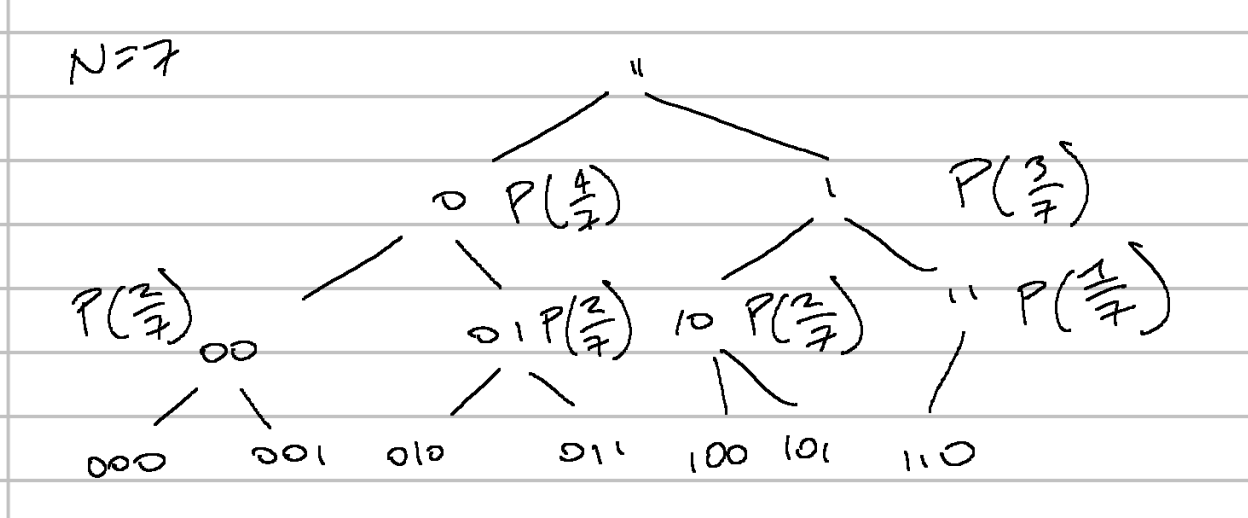 N=7
"
0 P(4/7) 1 P(3/7)
P(2/7) 00 01 P(2/7) 10 P(2/7) 11 P(1/7)
000 001 010 011 100 101 110